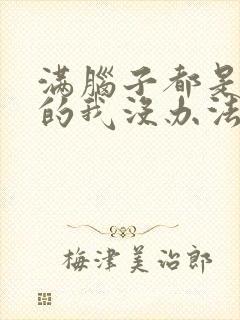 滿腦子都是
的我沒办法
梅津美治郎